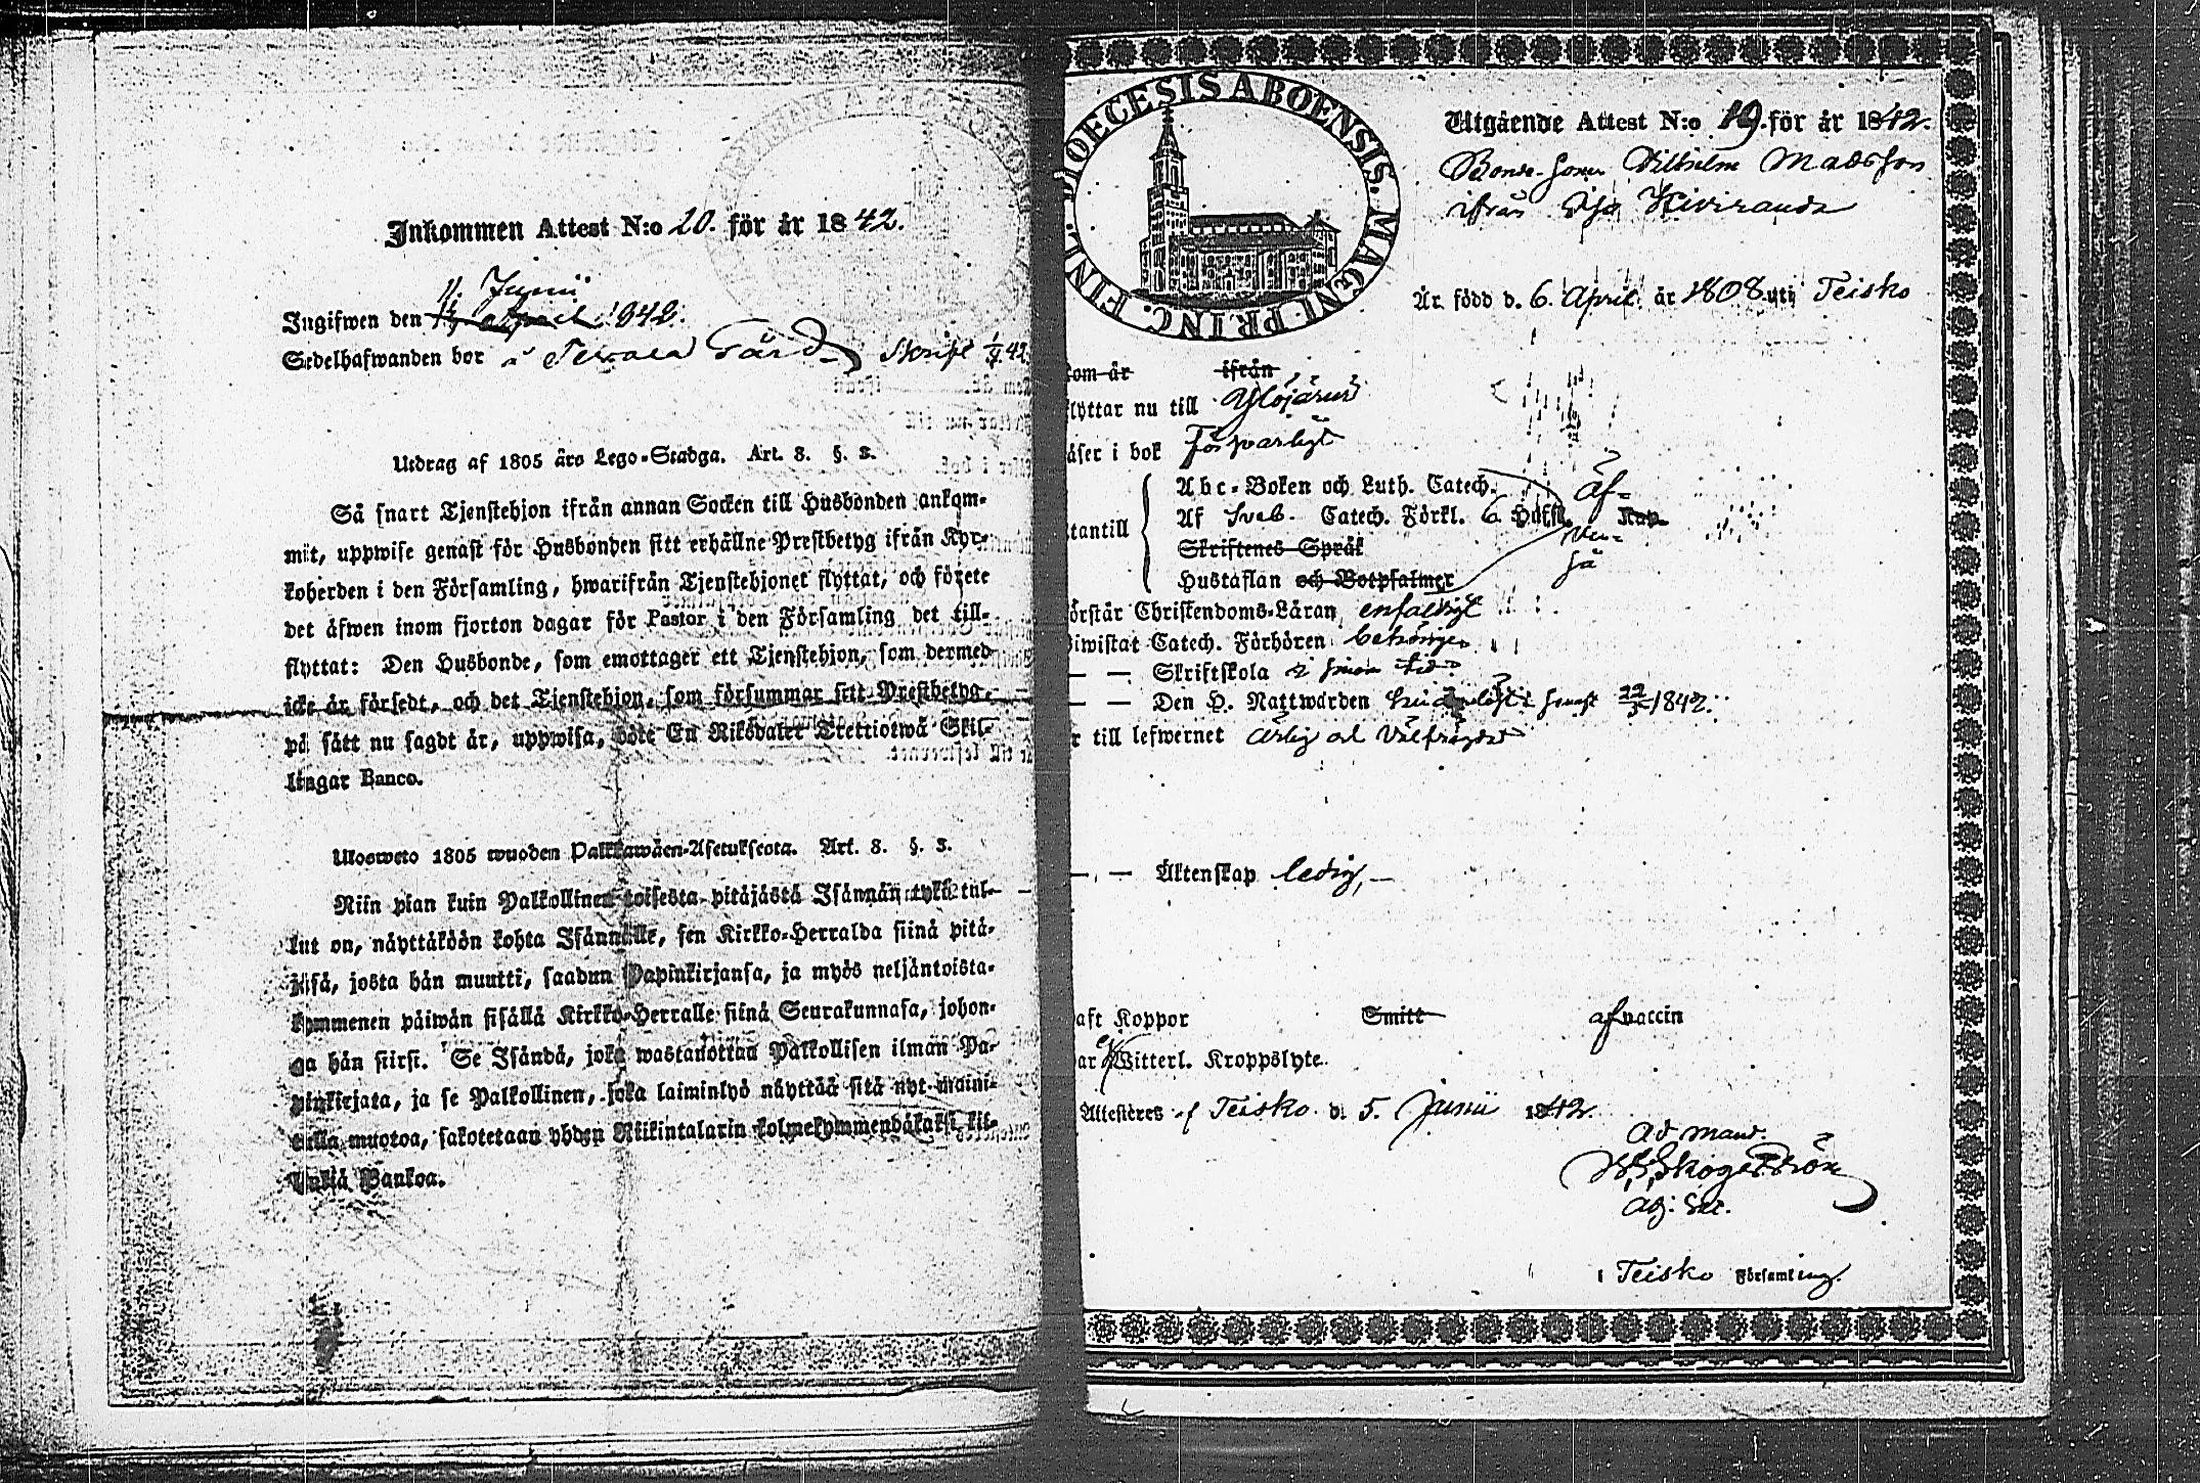 Inkommen Attest N:o 20. för år 1842.
11 Junii
Ingifwen den April 1842.
Sedelhafwanden bor Gård
Utdrag af 1805 års Lego-Stadga. Art. 8. §. 3.
Så snart Tjenstehjon ifrån annan Socken till Husbonden ankom-
mit, uppwise genast för Husbonden sitt erhållne Prestbetyg ifrån Kyr-
koherden i den Församling, hwarifrån Tjenstehjonet flyttat, och förete
det äfwen inom fjorton dagar för Pastor i den Församling det till-
flyttat: Den Husbonde, som emottager ett Tjenstehjon, som dermed
icke är försedt, och det Tjenstehjon, som försummar sitt Prestbetyg,
på sätt nu sagdt är, uppwisa, böte En Riksdaler Trettiotwå Skil-
lingar Banco.
Ulosweto 1805 wuoden Palkkawäen-Asetuksesta. Art. 8. §. 3.
Niin pian kuin Palkollinen toisesta pitäjästä Isännän tykö tul-
lut on, näyttäköön kohta Isännälle, sen Kirkko-Herralda siinä pitä-
jäsä, josta hän muutti, saadun Papinkirjansa, ja myös neljäntoista-
kymmenen päiwän sisällä Kirkko-Herralle siinä Seurakunnasa, johon-
ga hän siirsi. Se Isändä, joka wastanottaa Palkollisen ilman Pa-
pinkirjata, ja se Palkollinen, joka laiminlyö näyttää sitä nyt maini-
tulla muotoa, sakotetaan yhden Riikintalarin kolmekymmendäkaksi kil-
lingiä Bankoa.
DIOECESIS ABOENSIS. MAGNI PRINC. FINL.
Utgående Attest N:o 19. för år 1842.
Bonde-Sonen Wilhelm Matsson
ifrån Kiviranda
Är född d. 6. April år 1808 uti Teisko
kom år ifrån
flyttar nu till Ylöjärvi
läser i bok försvarligt
Abc-Boken och Luth. Catech.
Af Sveb. Catech. Förkl. 6. Huft.
utantill
Skriftenes Språk
Hustaflan och Botpsalmer
äf-
ven-
så
förstår Christendoms-Läran enfaldigt
biwistat Catech. Förhören behörigen
— — Skriftskola i sinom tid
— — Den H. Nattwarden senast 22/5 1842.
är till lefwernet ärlig och välfrägdad
— — Äktenskap ledig,
haft Koppor Smitt af vaccin
har ej Witterl. Kroppslyte.
Attesteres af Teisko d. 5. Junii 1842.
Ad mand.
Skogström
Adj: Sac.
i Teisko Församling.